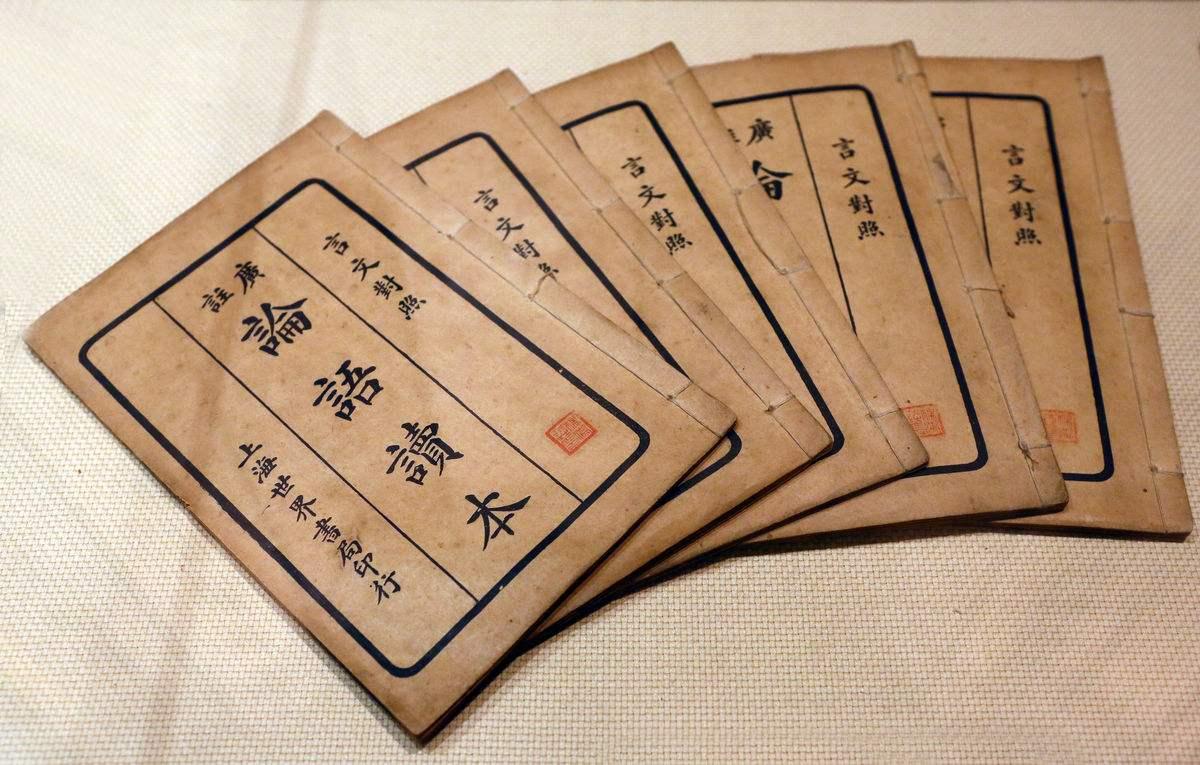 言文對照
廣註
論語讀本
上海世界書局印行
言文對
言文對照
言文對照
廣
言文對照